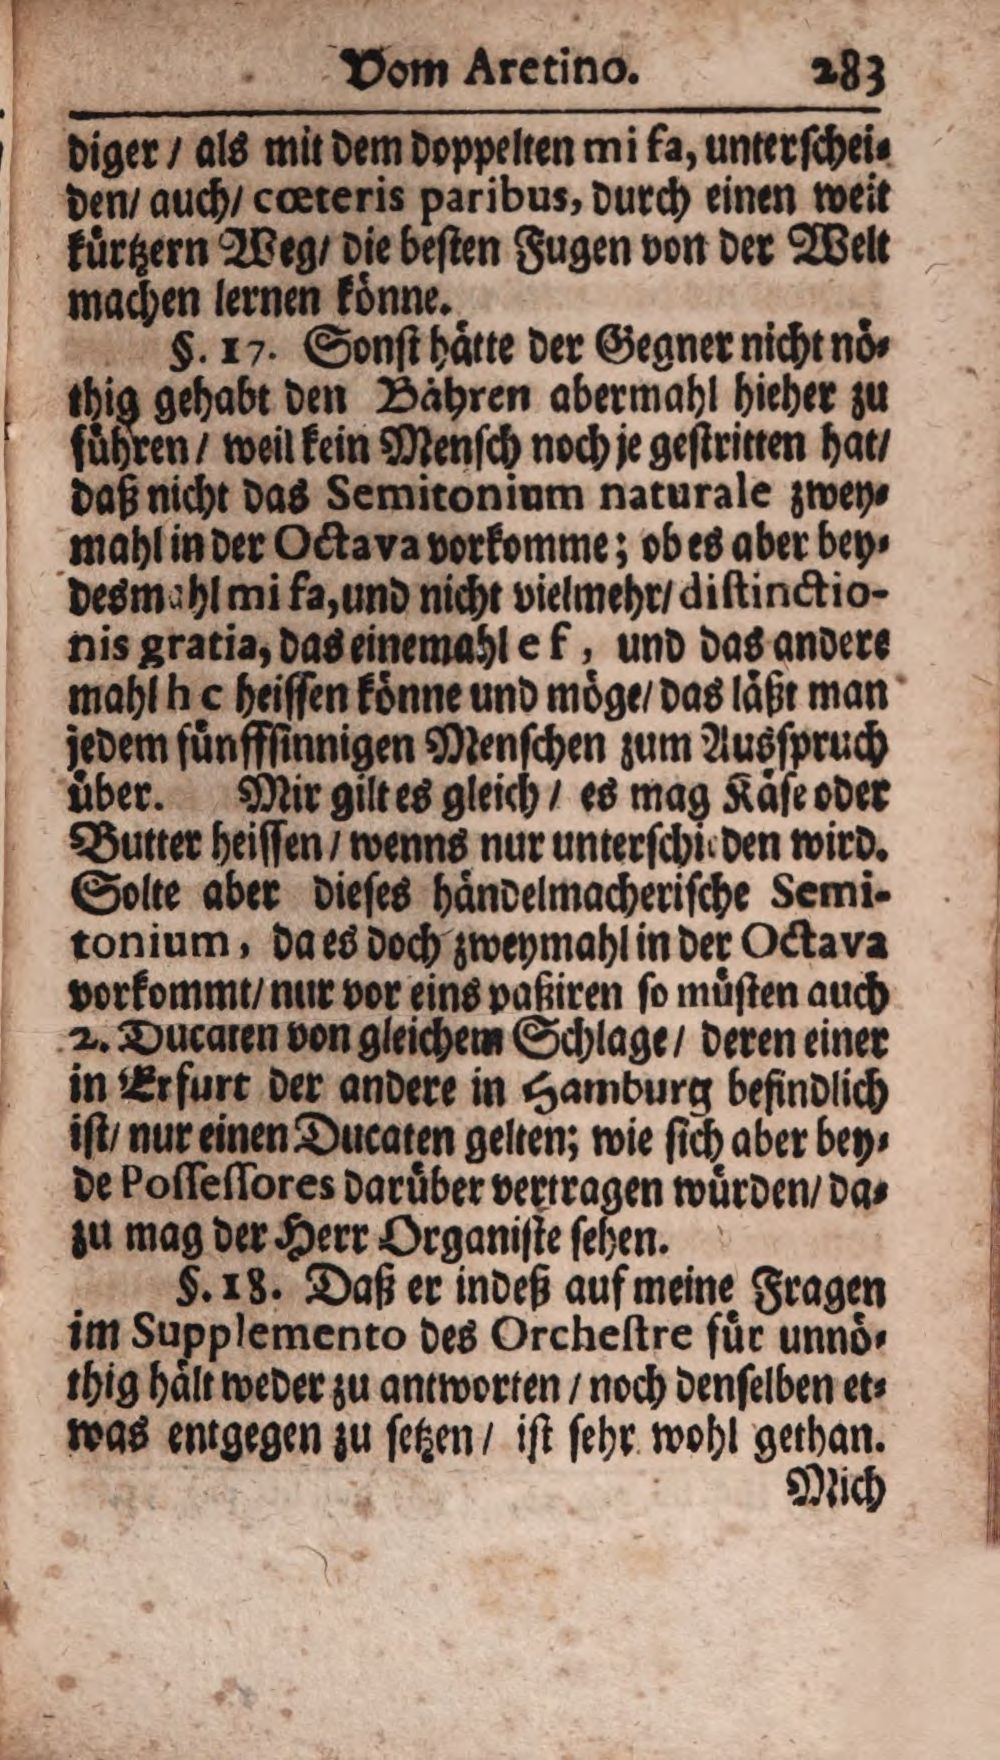 Vom Aretino. 283
diger / als mit dem doppelten mi fa, unterschei-
den/ auch/ cœteris paribus, durch einen weit
kürtzern Weg/ die besten Fugen von der Welt
machen lernen könne.
§. 17. Sonst hätte der Gegner nicht nö-
thig gehabt den Bähren abermahl hieher zu
führen / weil kein Mensch noch je gestritten hat/
daß nicht das Semitonium naturale zwey-
mahl in der Octava vorkomme; ob es aber bey-
desmahl mi fa, und nicht vielmehr/ distinctio-
nis gratia, das einemahl e f, und das andere
mahl h c heissen könne und möge/ das läßt man
jedem fünffsinnigen Menschen zum Ausspruch
über. Mir gilt es gleich / es mag Käse oder
Butter heissen / wenns nur unterschieden wird.
Solte aber dieses händelmacherische Semi-
tonium, da es doch zweymahl in der Octava
vorkommt/ nur vor eins paßiren so müsten auch
2. Ducaten von gleichem Schlage / deren einer
in Erfurt der andere in Hamburg befindlich
ist/ nur einen Ducaten gelten; wie sich aber bey-
de Possessores darüber vertragen würden/ da-
zu mag der Herr Organiste sehen.
§. 18. Daß er indeß auf meine Fragen
im Supplemento des Orchestre für unnö-
thig hält weder zu antworten / noch denselben et-
was entgegen zu setzen / ist sehr wohl gethan.
Mich